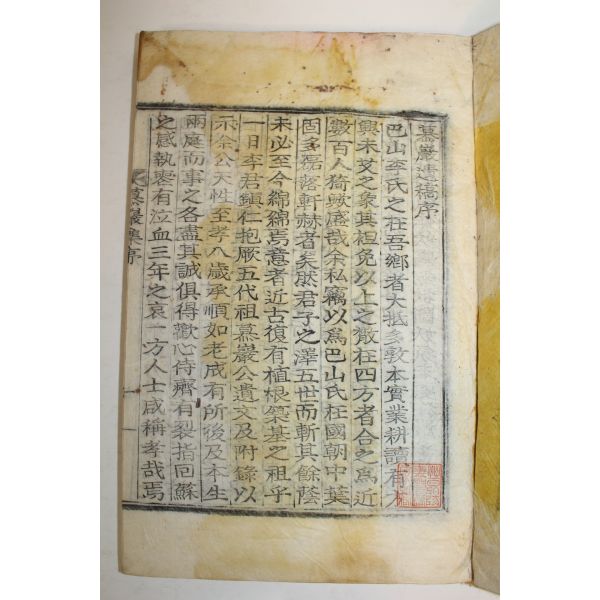 慕巖遺稿序
巴山李氏之在吾鄉者大抵多敦本實業耕讀有
興未艾之象其袒免以上之散在四方者合之爲近
數百人猗歟盛哉余私竊以爲巴山氏在國朝中葉
固多磊落軒赫者矣然君子之澤五世而斬其餘蔭
未必至今綿綿焉意者近古復有植根築基之祖乎
一日李君鎭仁抱厥五代祖慕巖公遺文及附錄以
示余公天性至孝八歲承順如老成有所後及本生
兩庭而事之各盡其誠俱得歡心侍癠有裂指回蘇
之感執喪有泣血三年之哀一方人士咸稱孝哉焉
慕巖集序